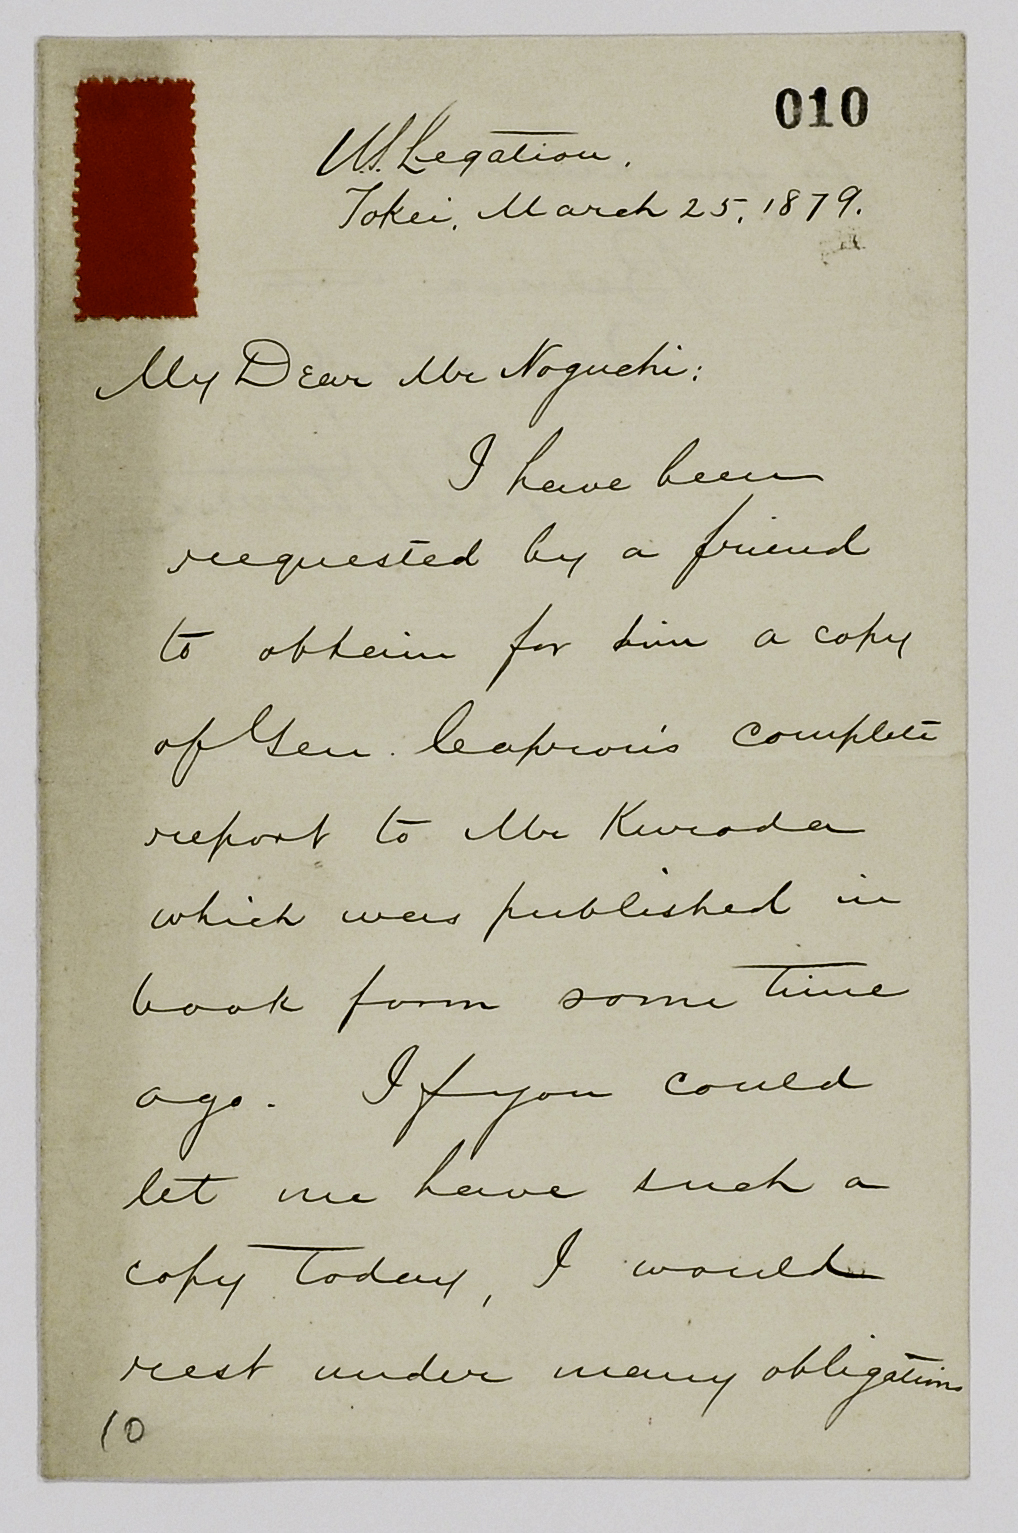 010
U.S. Legation.
Tokei, March 25, 1879.
My Dear Mr Noguchi:
I have been
requested by a friend
to obtain for him a copy
of Gen. Capron's complete
report to Mr Kuroda
which was published in
book form some time
ago. If you could
let me have such a
copy today, I would
rest under many obligations
10